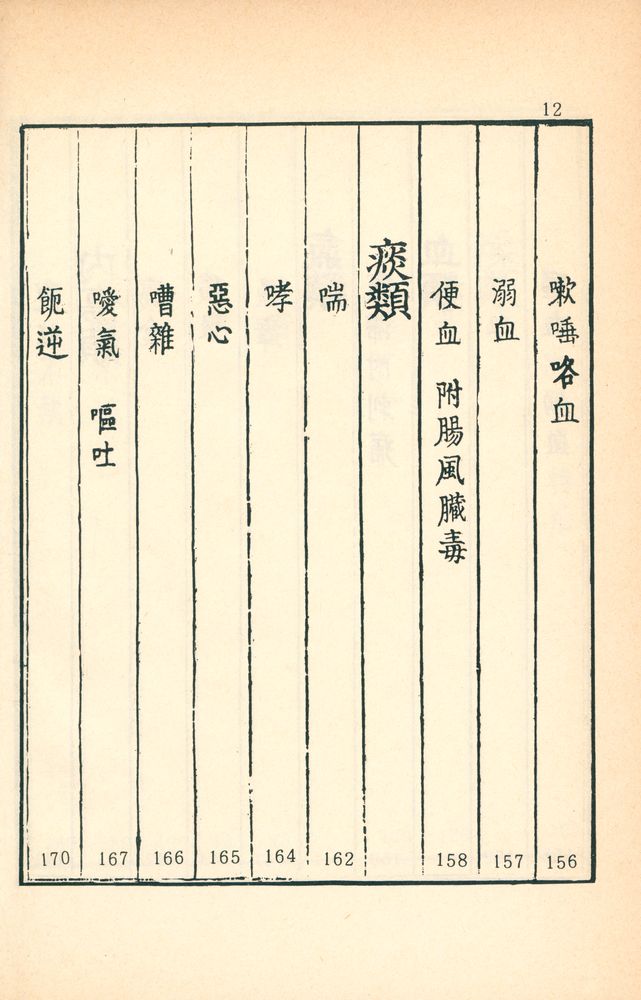 12
嗽唾咯血 156
溺血 157
便血 附腸風臟毒 158
痰類
喘 162
哮 164
惡心 165
嘈雜 166
噯氣 嘔吐 167
呃逆 170